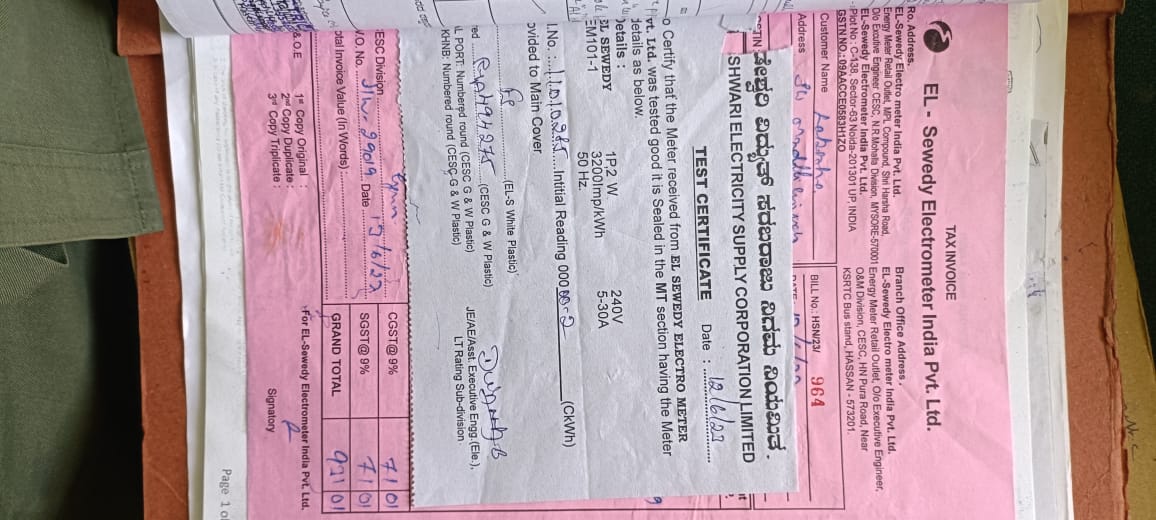 TAX INVOICE
EL - Sewedy Electrometer India Pvt. Ltd.
Ro. Address.
EL-Sewedy Electro meter India Pvt. Ltd.
Energy Meter Retail Outlet, MPL Compound, Shri Harsha Road,
O/o Excutive Engineer CESC, N.R Mohalla Division, MYSORE-570001
EL-Sewedy Electrometer India Pvt. Ltd.
Plot No : C-138, Sector-63 Noida-201301 UP, INDIA
GSTN NO.: 09AACCE0583H1ZO
Branch Office Address .
EL-Sewedy Electro meter India Pvt. Ltd.
Energy Meter Retail Outlet, O/o Executive Engineer,
O&M Division, CESC, HN Pura Road, Near
KSRTC Bus stand, HASSAN - 573201.
Customer Name
BILL No.: HSN/23/ 964
Address
ವಿದ್ಯುತ್ ಸರಬರಾಜು ನಿಗಮ ನಿಯಮಿತ.
SHWARI ELECTRICITY SUPPLY CORPORATION LIMITED
TEST CERTIFICATE
Date : 12/6/23
o Certify that the Meter received from EL SEWEDY ELECTRO METER
vt. Ltd. was tested good it is Sealed in the MT section having the Meter
details as below.
Details :
EL SEWEDY 1P,2 W 240V
EM101-1 3200Imp/kWh 5-30A
50 Hz.
l.No. : 11010285 Intitial Reading 000 (CkWh)
ovided to Main Cover
(EL-S White Plastic)
(CESC G & W Plastic)
AL PORT: Numbered round (CESC G & W Plastic)
KHNB: Numbered round (CESC G & W Plastic)
JE/AE/Asst. Executive Engg.(Ele.),
LT Rating Sub-division
CESC Division
W.O. No. Date
otal Invoice Value (In Words) :
CGST@9% 71 01
SGST@9% 71 01
GRAND TOTAL 931 01
& O.E
1st Copy Original :
2nd Copy Duplicate :
3rd Copy Triplicate :
For EL-Sewedy Electrometer India Pvt. Ltd.
Signatory
Page 1 o